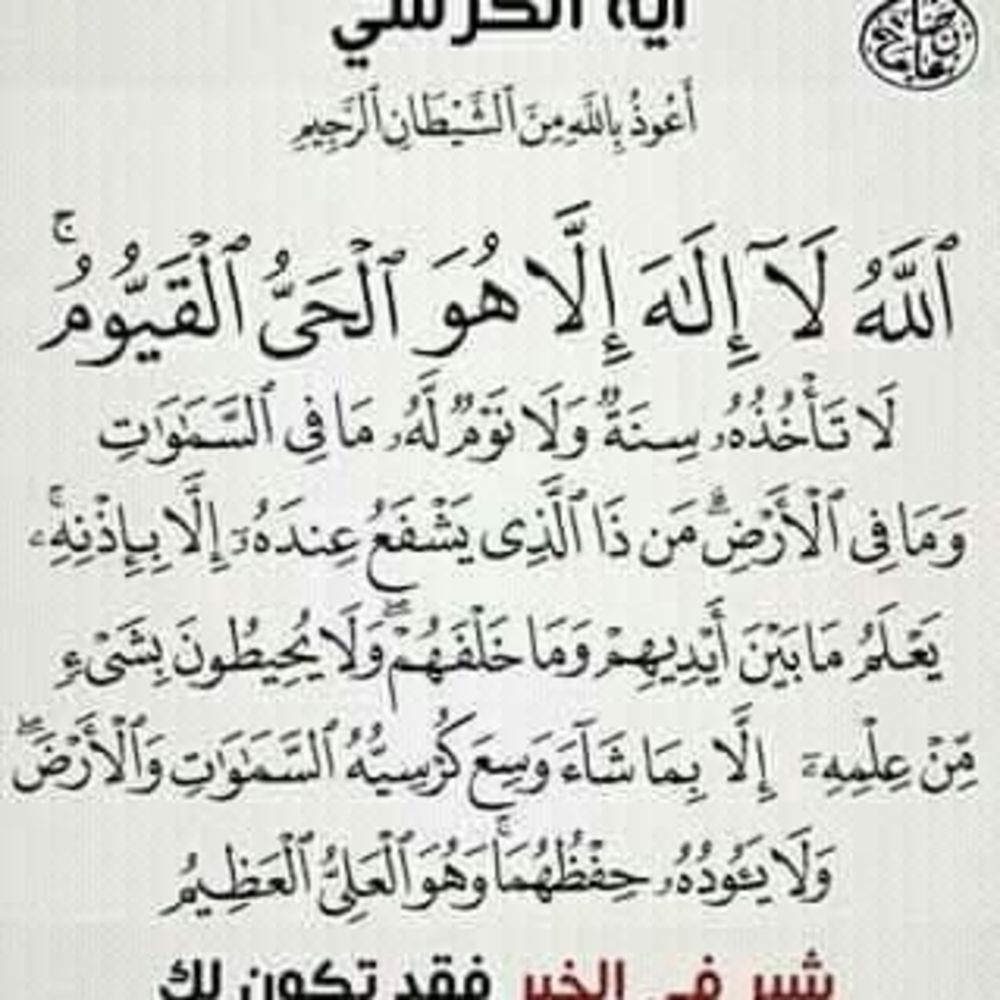 آية الكرسي
أَعُوذُ بِاللَّهِ مِنَ ٱلشَّيْطَانِ ٱلرَّجِيمِ
ٱللَّهُ لَآ إِلَٰهَ إِلَّا هُوَ ٱلْحَىُّ ٱلْقَيُّومُ ۚ
لَا تَأْخُذُهُۥ سِنَةٌ وَلَا نَوْمٌ لَّهُۥ مَا فِى ٱلسَّمَٰوَٰتِ
وَمَا فِى ٱلْأَرْضِ ۗ مَن ذَا ٱلَّذِى يَشْفَعُ عِندَهُۥٓ إِلَّا بِإِذْنِهِۦ ۚ
يَعْلَمُ مَا بَيْنَ أَيْدِيهِمْ وَمَا خَلْفَهُمْ ۖ وَلَا يُحِيطُونَ بِشَىْءٍ
مِّنْ عِلْمِهِۦٓ إِلَّا بِمَا شَآءَ وَسِعَ كُرْسِيُّهُ ٱلسَّمَٰوَٰتِ وَٱلْأَرْضَ ۖ
وَلَا يَـُٔودُهُۥ حِفْظُهُمَا ۚ وَهُوَ ٱلْعَلِىُّ ٱلْعَظِيمُ
شير في الخير فقد تكون لك